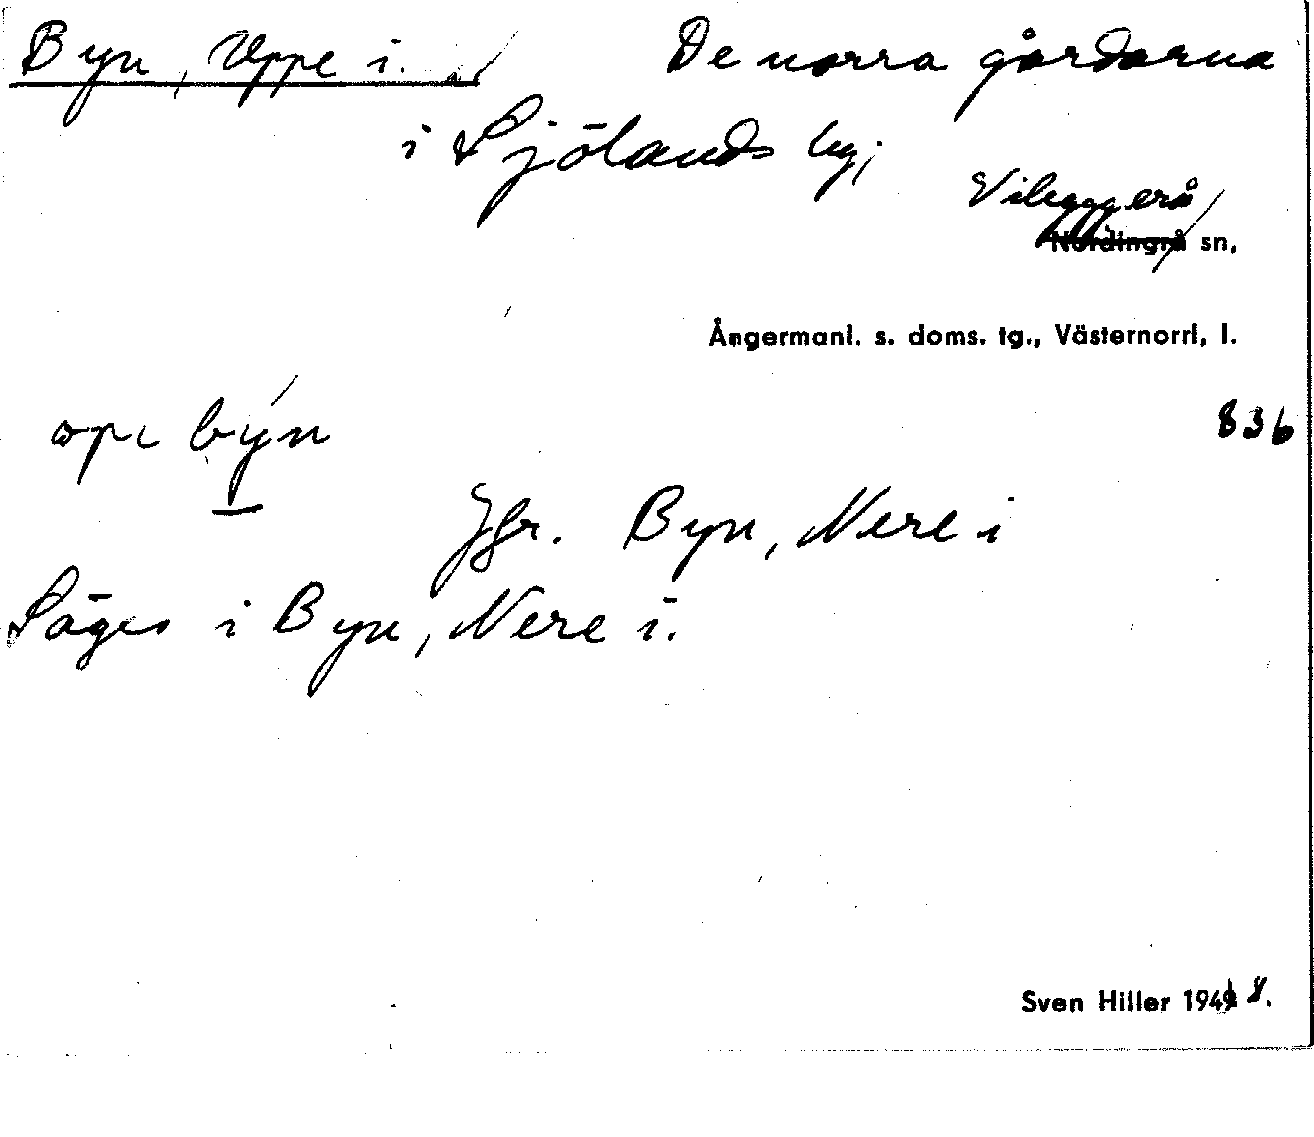 Byn, Uppe i. De norra gårdarna
i Sjölands by;
Vibyggerå
Nordingrå sn,
Ångermanl. s. doms. tg., Västernorrl, l.
836
Jfr. Byn, Nere i
Säges i Byn, Nere i.
Sven Hiller 1948.